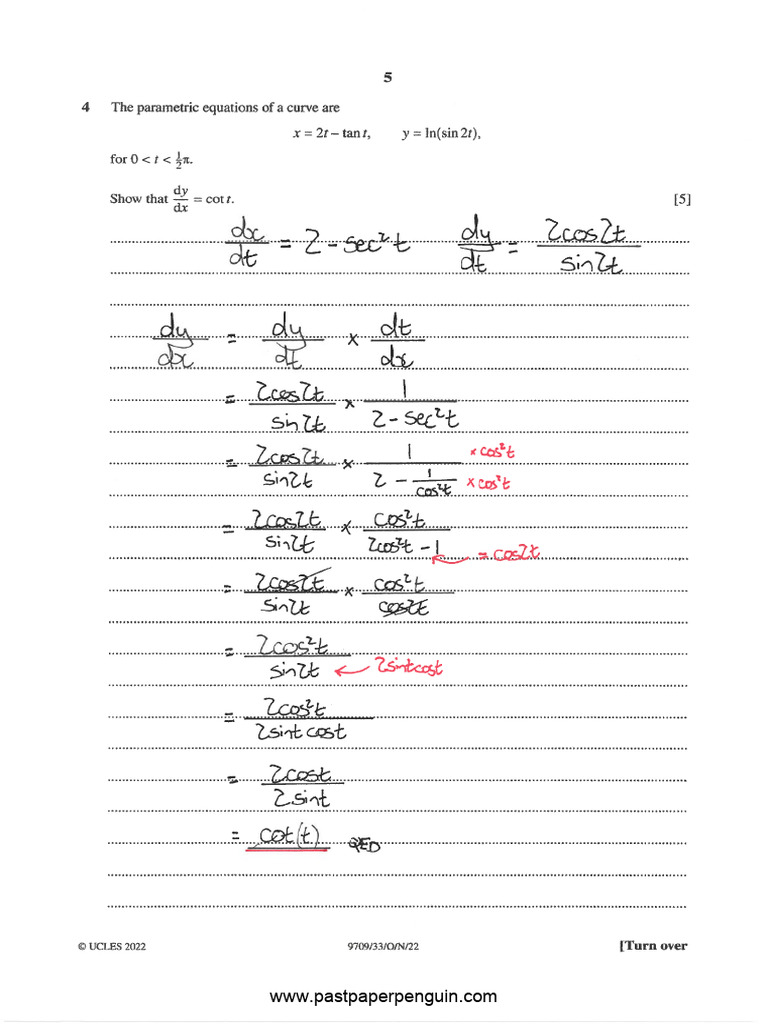 5
4 The parametric equations of a curve are
x = 2t – tan t, y = ln(sin 2t),
for 0 < t < ½π.
Show that dy/dx = cot t. [5]
dx/dt = 2 - sec²t dy/dt = 2cos2t/sin2t
dy/dx = dy/dt × dt/dx
= 2cos2t/sin2t × 1/(2 - sec²t)
= 2cos2t/sin2t × 1/(2 - 1/cos²t) ×cos²t ×cos²t
= 2cos2t/sin2t × cos²t/(2cos²t - 1) = cos2t
= 2cos2t/sin2t × cos²t/cos2t
= 2cos²t/sin2t ← 2sintcost
= 2cos²t/2sint cost
= 2cost/2sint
= cot(t) QED
© UCLES 2022 9709/33/O/N/22 [Turn over
www.pastpaperpenguin.com